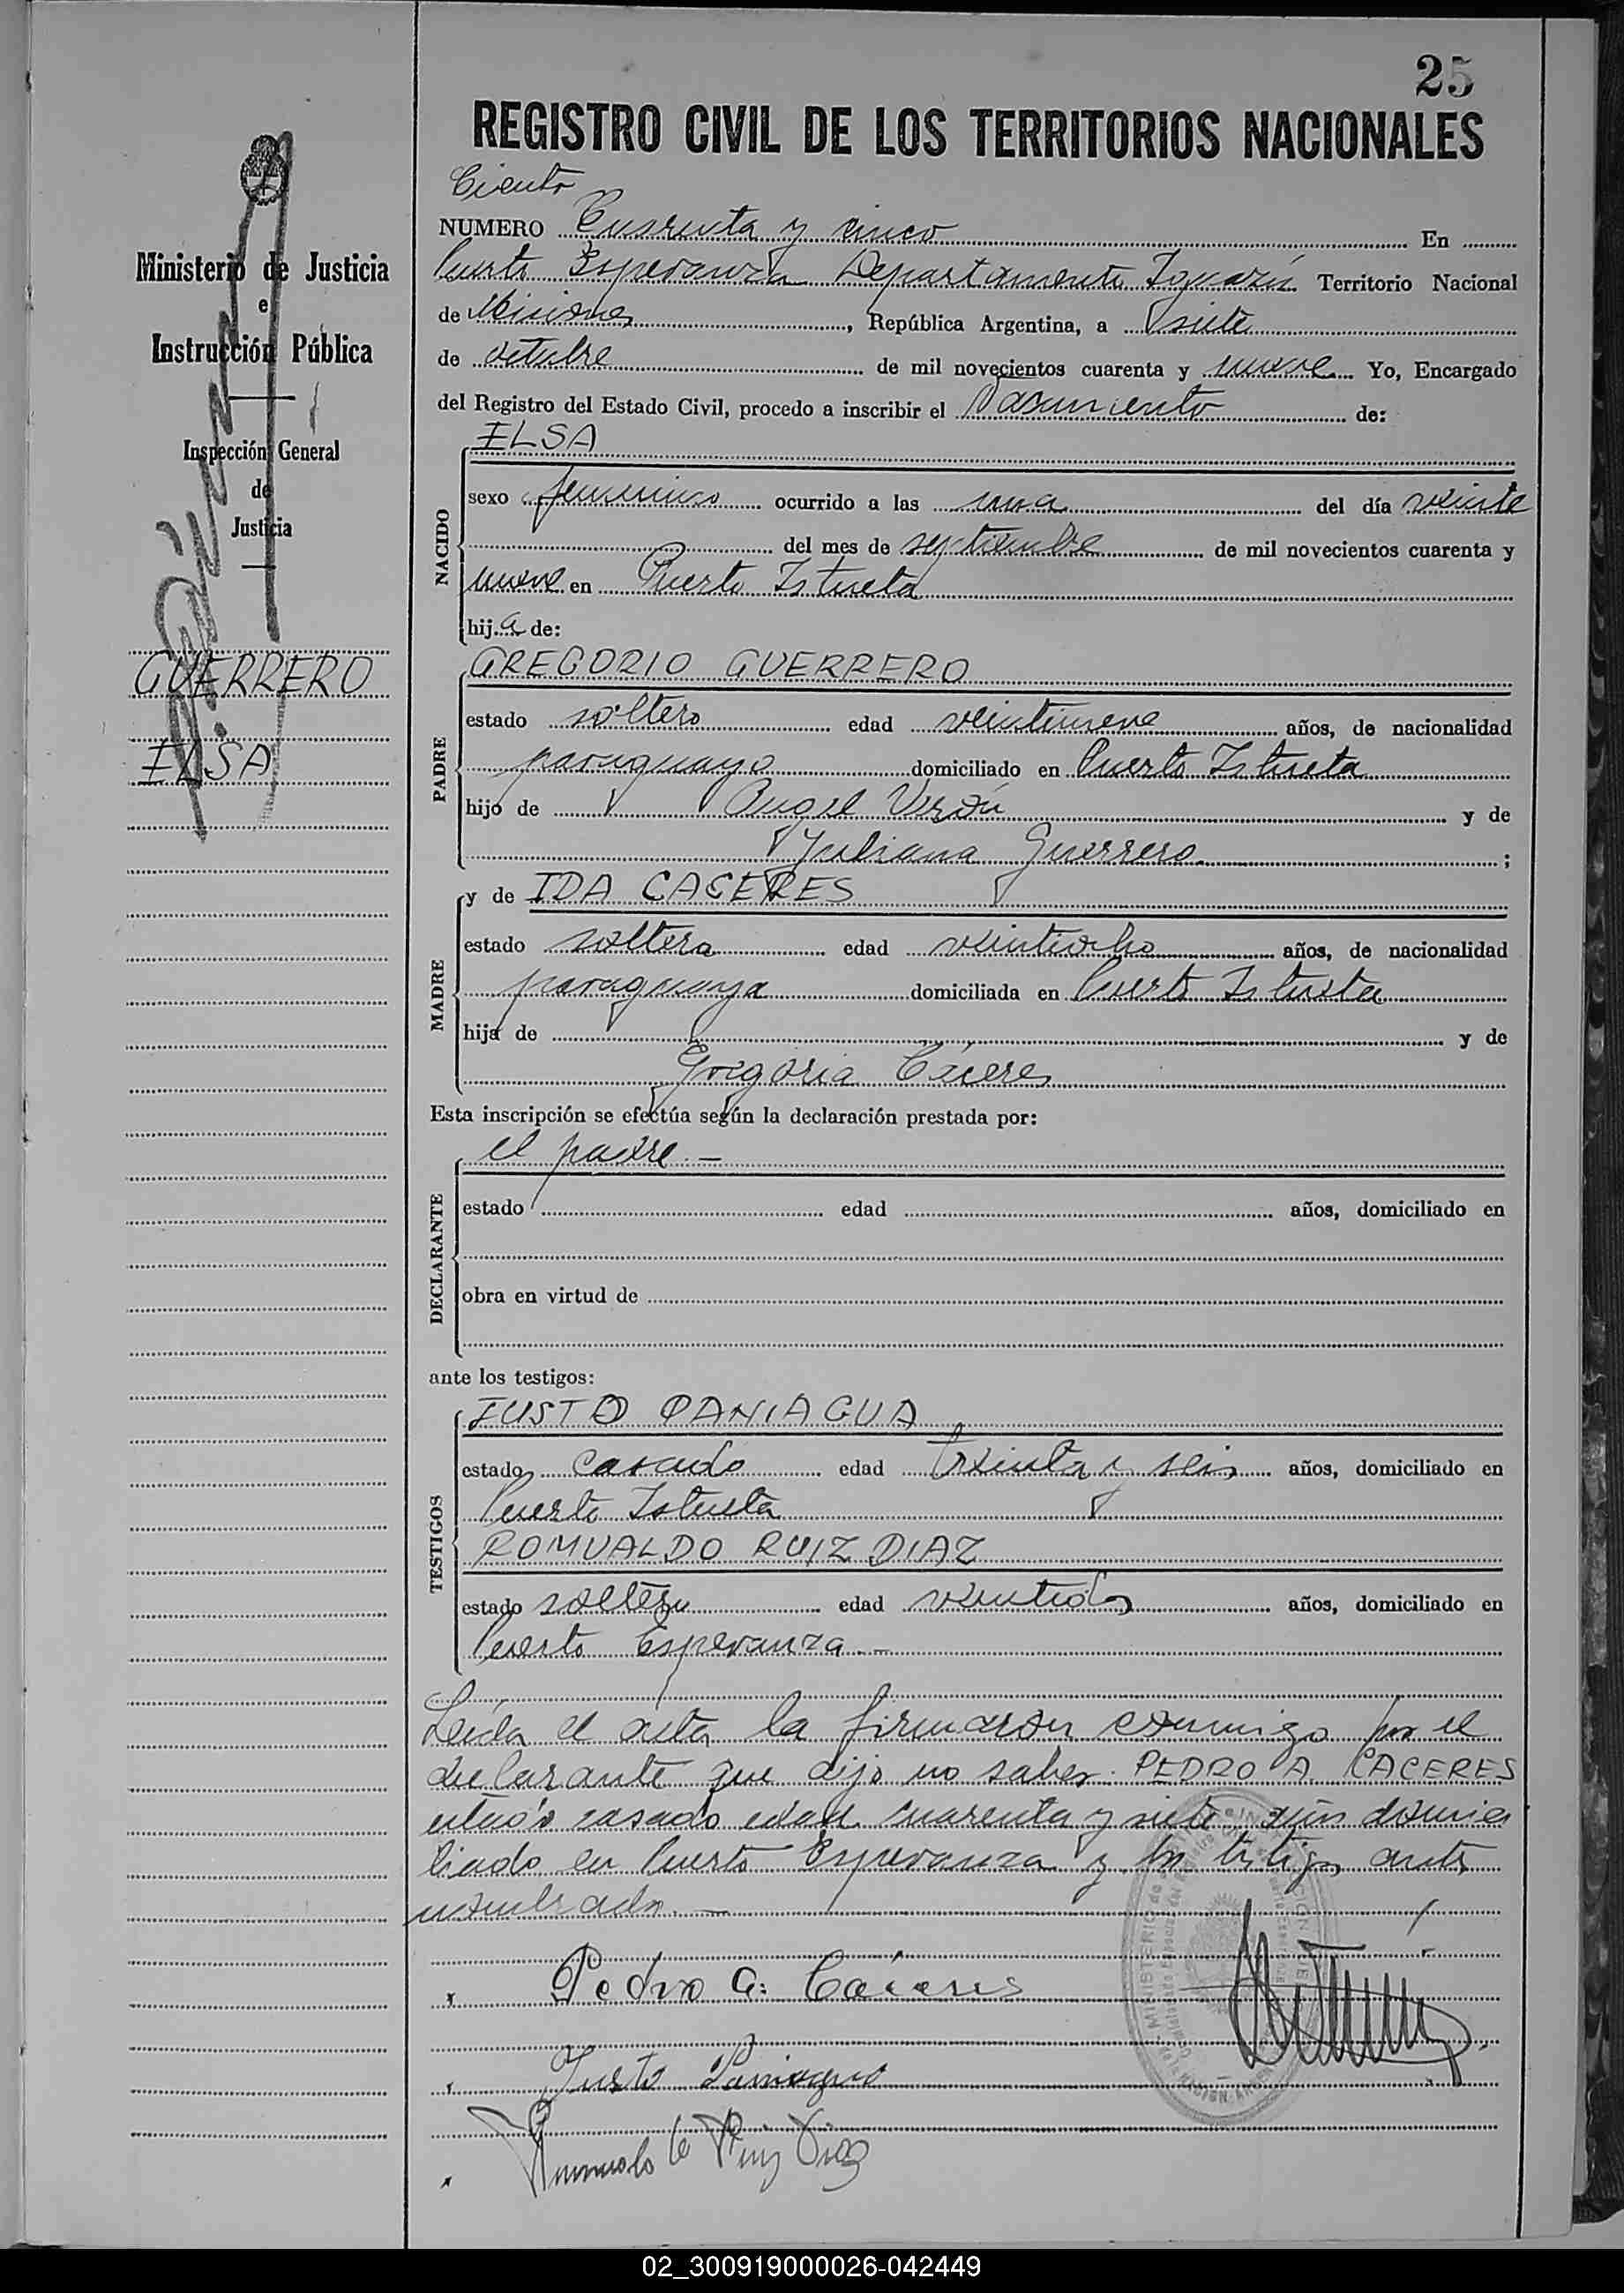 25
REGISTRO CIVIL DE LOS TERRITORIOS NACIONALES
Ministerio de Justicia
e
Instrucción Pública
Inspección General
de
Justicia
GUERRERO
ELSA
Ciento
NUMERO Cuarenta y cinco En
Puerto Esperanza Departamento Iguazú Territorio Nacional
de Misiones, República Argentina, a siete
de octubre de mil novecientos cuarenta y nueve Yo, Encargado
del Registro del Estado Civil, procedo a inscribir el Nacimiento de:
NACIDO
ELSA
sexo femenino ocurrido a las una del día veinte
del mes de septiembre de mil novecientos cuarenta y
nueve en Puerto Istueta
hija de:
PADRE
GREGORIO GUERRERO
estado soltero edad veintinueve años, de nacionalidad
paraguayo domiciliado en Puerto Istueta
hijo de Angel Verón y de
Juliana Guerrero ;
MADRE
y de IDA CACERES
estado soltera edad veintiocho años, de nacionalidad
paraguaya domiciliada en Puerto Istueta
hija de y de
Gregoria Cáceres
Esta inscripción se efectúa según la declaración prestada por:
DECLARANTE
el padre.—
estado edad años, domiciliado en
obra en virtud de
ante los testigos:
TESTIGOS
JUSTO PANIAGUA
estado casado edad treinta y seis años, domiciliado en
Puerto Istueta
ROMUALDO RUIZ DIAZ
estado soltero edad veintidos años, domiciliado en
Puerto Esperanza.—
Leída el acta la firmaron conmigo por el
declarante que dijo no saber. PEDRO A. CACERES
estado casado edad cuarenta y siete años domici
liado en Puerto Esperanza y los testigos antes
nombrados.—
x Pedro A. Cáceres
x Justo Paniagua
x Romualdo Ruiz Diaz
02_300919000026-042449